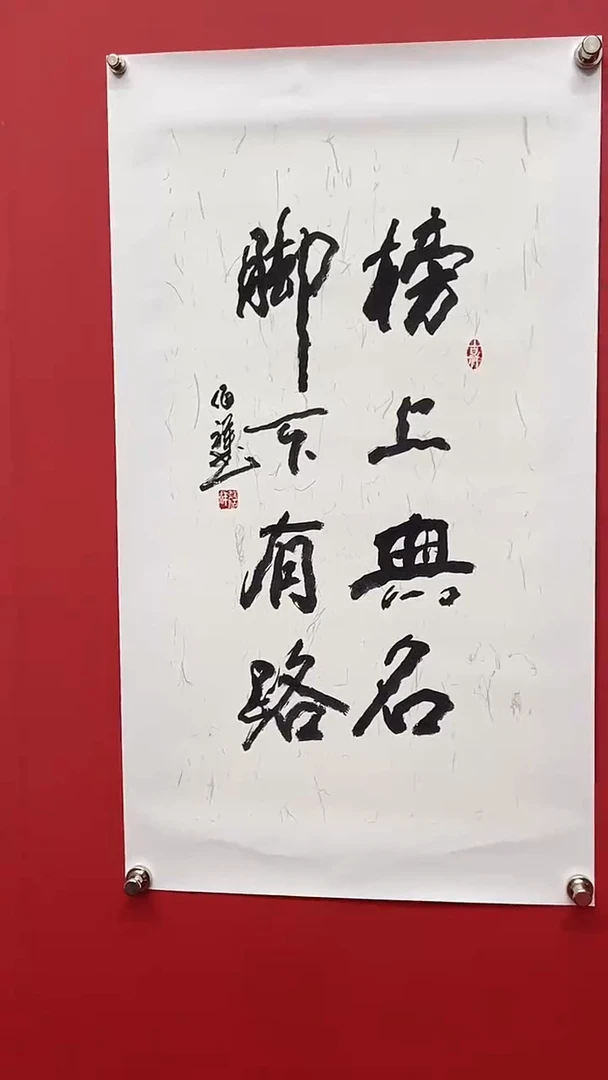 榜上無名
脚下有路
伯祥